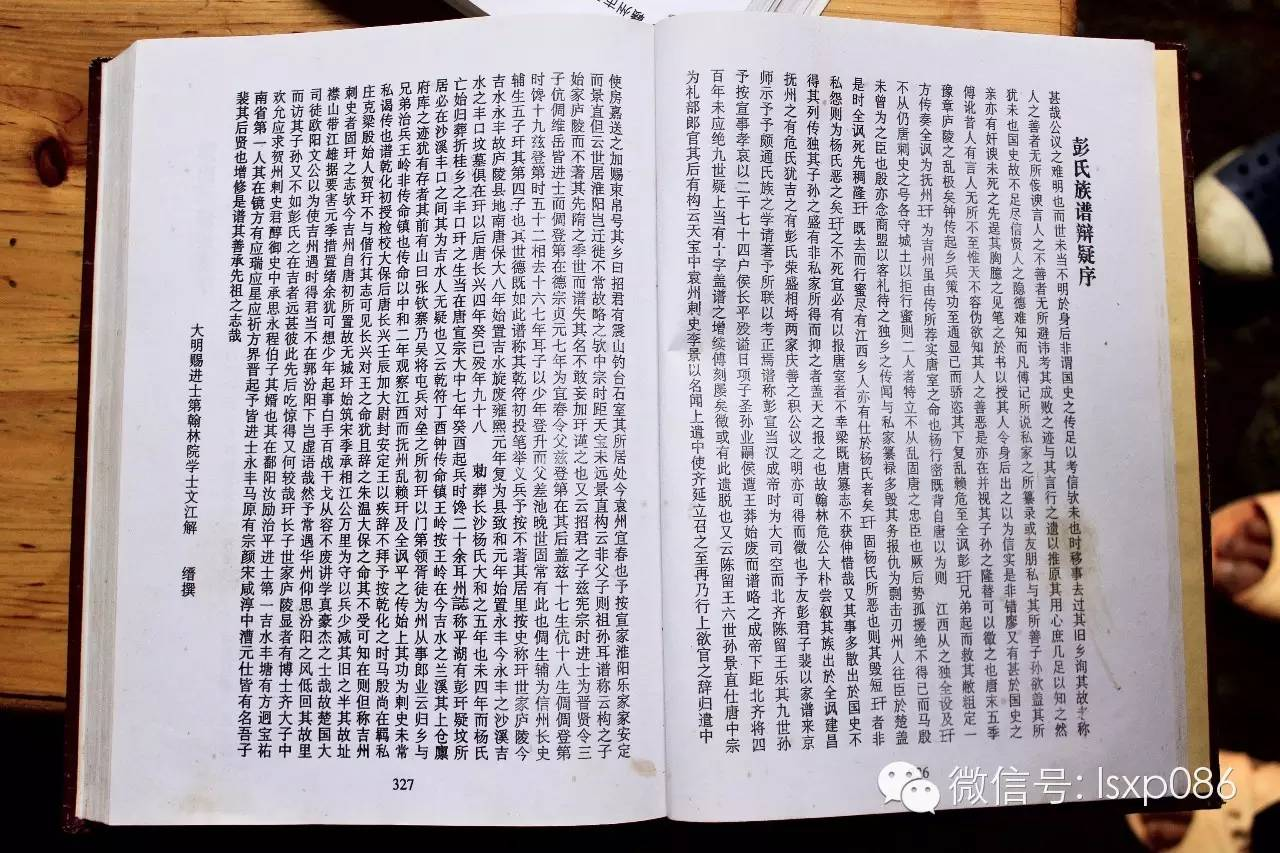 彭氏族谱辩疑序
甚哉公议之难明也而世未当不明於身后非谓国史之传足以考信欤未也时移事去过其旧乡询其故老称
人之善者无所侫谀言人之不善者无所避讳考其成败之迹与其言行之遗以推原其用心庶几足以知之然
犹未也国史故不足尽信贤人之隐德难知而凡傅记所说私家之所纂录或友朋私与其所善子孙欲盖其所
亲亦有奸谀未死之先逞其胸臆之见笔之於书以授其人令身后出之以为信实是非错廖又有甚於国史之
傅讹昔人有言人无所不至惟天不容伪欲知其人之善恶是亦在并视其子孙之隆替可以徵之也唐末五季
豫章庐陵之乱极矣钟传起乡兵策功至通显已而骄恣其下复乱赖危至全讽彭玕兄弟起而救其敝粗定一
方传奏全讽为抚州玕为吉州虽由传所荐实唐室之命也杨行密既背自唐以为则 江西从之独全设及玕
不从仍唐剌史之号各守城土以拒行蜜则二人者特立不从乱固唐之忠臣也厥后势孤援绝不得已而马殷
未曾为之臣也殷亦念商盟以客礼待之独乡之传闻与私家纂禄多毁其务报仇为剽击刃州人往臣於楚盖
是时全讽死先稠隆玕既去而行蜜尽有江西乡人亦有仕於杨氏者矣玕固杨氏所恶也则其毁短玕者非
私怨则为杨氏恶之矣玕之不死宜必有以报唐室者不幸梁既唐纂志不获伸惜哉又其事多散出於国史不
得其列传独其子孙之盛有非私家所得而抑之者盖天之报之也故翰林危公大朴尝叙其族出於全讽建昌
抚州之有危氏犹吉之有彭氏荣盛相埒两家庆善之积公议之明亦可得而徵也予友彭君子裴以家谱来京
师示予予颇通氏族之学请著予所联以考正焉谱称彭宣当汉成帝时为大司空而北齐陈留王乐其九世孙
予按宣事孝哀以二千七十四户侯长平殁谥日项子圣孙业嗣侯遭王莽始废而谱略之成帝下距北齐将四
百年未应绝九世疑上当有十字盖谱之增续傅刻屡矣徵或有此遗脱也又云陈留王六世孙景直仕唐中宗
为礼部郎官其后有构云天宝中袁州剌史李景以名闻上遣中使齐延立召之至再乃行上欲官之辞归遣中
使房嘉送之加赐束帛号其乡曰招君有震山钓台石室其所居处今袁州宜春也予按宣家淮阳乐家家安定
而景直但云世居淮阳岂迁徙不常故略之欤中宗时距天宝未远景直构云非父子则祖孙耳谱称云构之子
始家庐陵而不著其先隋之季世而谱失其名不敢妄加玕谨之也又云招君之子兹宪宗时进士为晋贤令三
子伉倜维岳皆进士而倜登第在德宗贞元七年为宜春令父兹登第在其后盖兹十七生伉十八生倜倜登第
时馋十九兹登第时五十二相去十六七年耳子以少年登升而父差池晚世固常有此也倜生辅为信州长史
辅生五子玕其第四子也其世德既如此谱称其乾符初投笔举义兵予按不著其居里按史称玕世家庐陵今
吉水永丰故庐陵县地南唐保大八年始置吉水旋废雍熙元年复为县致和元年始置永丰今永丰之沙溪吉
水之丰口坟墓俱在玕以后唐长兴四年癸已殁年九十八 勑葬长沙杨氏大和之五年也未四年而杨氏
亡始归葬折桂乡之丰口玕之生当在唐宣宗大中七年癸酉起兵时馋二十余耳州誌称平湖有彭玕疑坟所
居必在沙溪丰口之间其为吉水人无疑也又云乾符丁酉钟传命镇王岭按王岭在今吉水之兰溪其上仓廪
府库之迹犹有存者其前有山曰张钦寨乃吴将屯兵对垒之所初玕以门第领胥徒为州从事郎业云归乡与
兄弟治兵王岭非传命镇也传命以中和二年观察江西而抚州乱赖玕及全讽平之传始上其功为刺史未常
私谒传也谱乾化初授检校大保后唐长兴壬辰加大尉封安定王以疾辞不拜予按乾化之时马殷尚在羁私
庄克梁殷始人贺玕不与偕行其志可见长兴对王之命犹且辞之朱温大保之命其不受可知在则但称吉州
刺史者固玕之志欤今吉州自唐初所置故无城玕始筑宋季承相江公万里为守以兵少减其旧之半其故址
襟山带江雄据要害元季措置绪余犹可想少年起事白手百战干戈从容不废讲学真豪杰之士哉故楚国大
司徒欧阳文公以为使吉州遇时得君当不在郭汾阳下岂虚语哉然予常遇华州仰思汾阳之风低回其故里
而访其子孙又不如彭氏之在吉者远甚彼此先后吃惊得又何较哉玕长子世家庐陵显者有博士齐大子中
欢允应求贺州刺史君醇御史中承思永程伯子其婿也其在鄱阳汝励治平进士第一吉水丰塘有方迥宝祐
南省第一人其在镜方有应瑞应星应祈方界晋起予皆进士永丰马原有宗颜宋咸淳中漕元仕皆有名吾子
裴其后贤也增修是谱其善承先祖之志哉
大明赐进士第翰林院学士文江解 缙撰
327
26
微信号: lsxp086